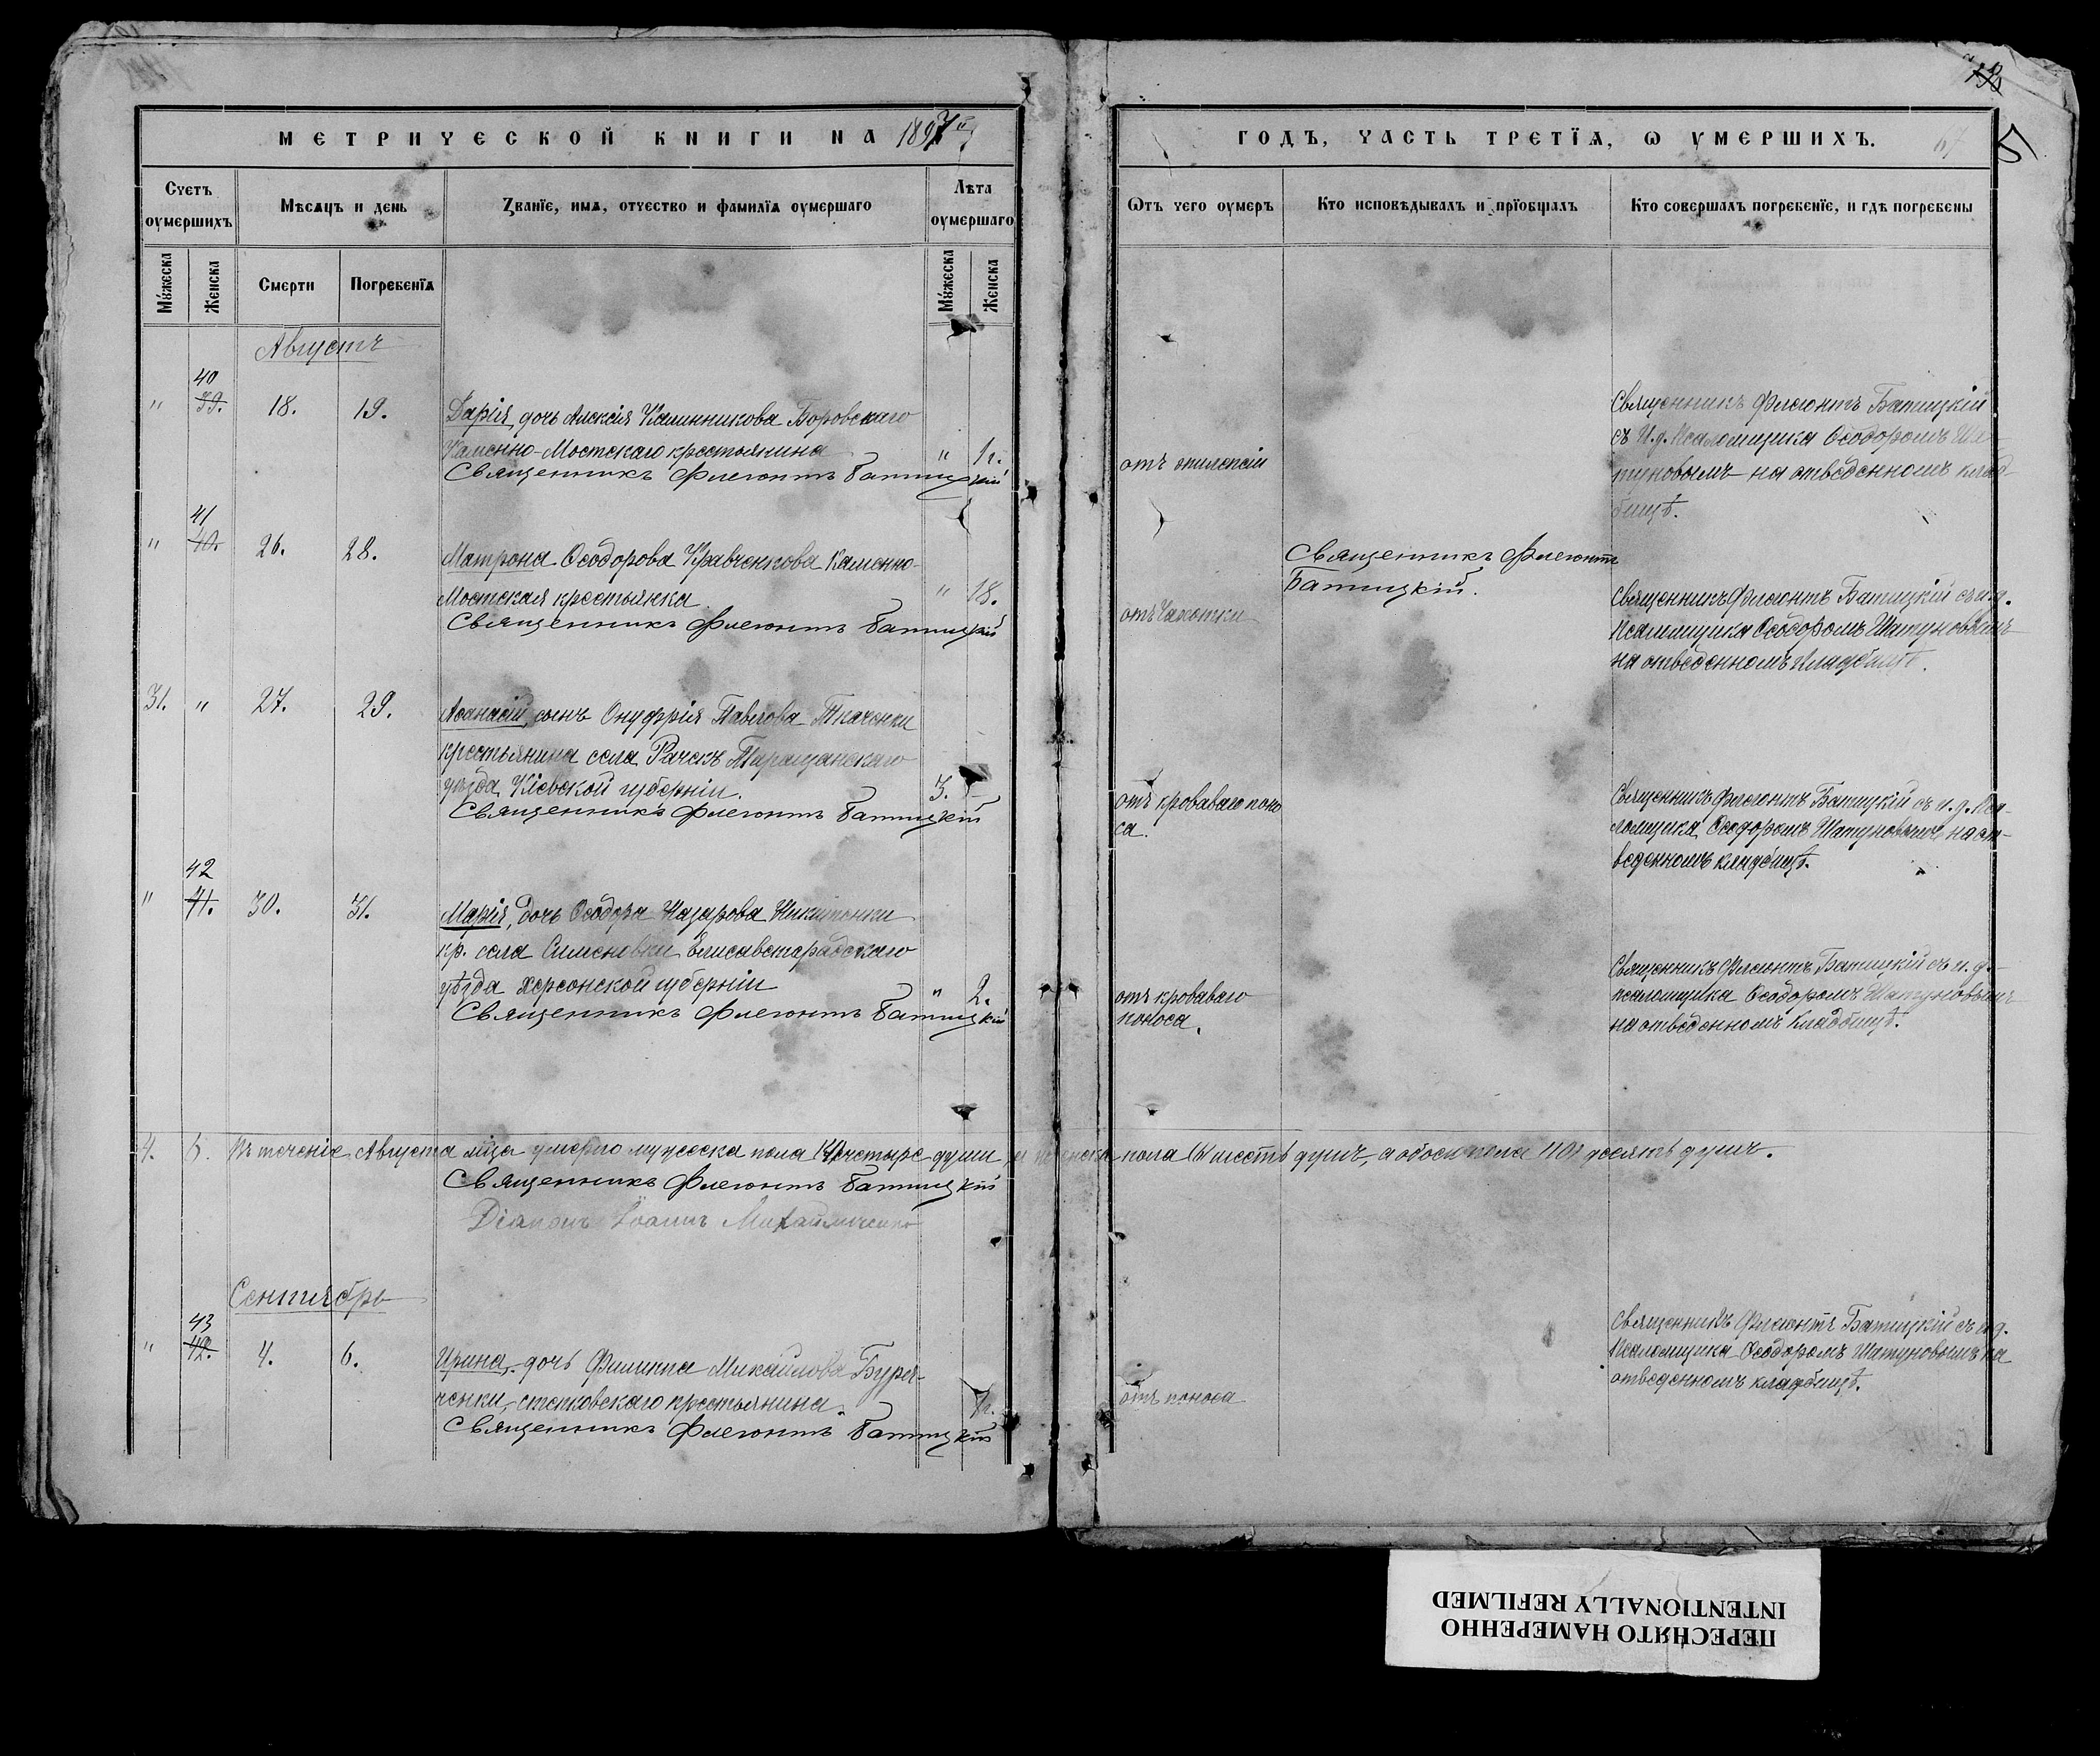 МЕТРИЧЕСКОЙ КНИГИ НА 1897й
Счетъ оумершихъ
Мѣсяцъ и день
Званїе, имя, отчество и фамилїя оумершаго
Лѣта оумершаго
Мꙋжеска
Женска
Смерти
Погребенїя
Мꙋжеска
Женска
Августъ
40
" 39. 18. 19. Дарія, дочь Алексія Калинникова Боровскаго
Каменно-Мостскаго крестьянина " 1 г.
Священникъ Флегонтъ Батицкій
41
" 40. 26. 28. Матрона Ѳеодорова Кравченкова Каменно-
Мостская крестьянка " 18.
Священникъ Флегонтъ Батицкій
31. " 27. 29. Аѳанасій, сынъ Онуфрія Павлова Ткаченки
крестьянина села Таращанскаго
уѣзда Кіевской губерніи. 3. –
Священникъ Флегонтъ Батицкій
42
" 41. 30. 31. Марія, дочь Ѳеодора Назарова Никитенки
кр. села Елисаветградскаго
уѣзда Херсонской губерніи " 2.
Священникъ Флегонтъ Батицкій
4. 6. Въ теченіе Августа мѣсца умерло мужеска пола /4/ четыре души, а женска
Священникъ Флегонтъ Батицкій
Діаконъ Іоаннъ
Сентябрь
43
" 42. 4. 6. Ирина, дочь Филиппа Михайлова
ченки, крестьянина.
Священникъ Флегонтъ Батицкій
ГОДЪ, ЧАСТЬ ТРЕТЇЯ, Ѡ ОУМЕРШИХЪ.
67
5
Ѿтъ чего оумеръ
Кто исповѣдывалъ и прїобщалъ
Кто совершалъ погребенїе, и гдѣ погребены
Священникъ Флегонтъ Батицкій
съ И.д. Псаломщика Ѳеодоромъ Ша-
туновымъ на отведенномъ клад-
бищѣ.
отъ эпилепсіи
Священникъ Флегонтъ
Батицкій.
отъ чахотки
Священникъ Флегонтъ Батицкій съ и.д.
Псаломщика Ѳеодоромъ Шатуновымъ
на отведенномъ кладбищѣ.
отъ кроваваго поно
са.
Священникъ Флегонтъ Батицкій съ и.д. Пса-
ломщика Ѳеодоромъ Шатуновымъ на от-
веденномъ кладбищѣ.
отъ кроваваго
поноса.
Священникъ Флегонтъ Батицкій съ и.д.
псаломщика Ѳеодоромъ Шатуновымъ
на отведенномъ кладбищѣ.
пола /6/ шесть душъ, а обоего пола /10/ десять душъ.
отъ поноса
Священникъ Флегонтъ Батицкій съ и.д.
Псаломщика Ѳеодоромъ Шатуновымъ на
отведенномъ кладбищѣ.
ПЕРЕСНЯТО НАМЕРЕННО
INTENTIONALLY REFILMED